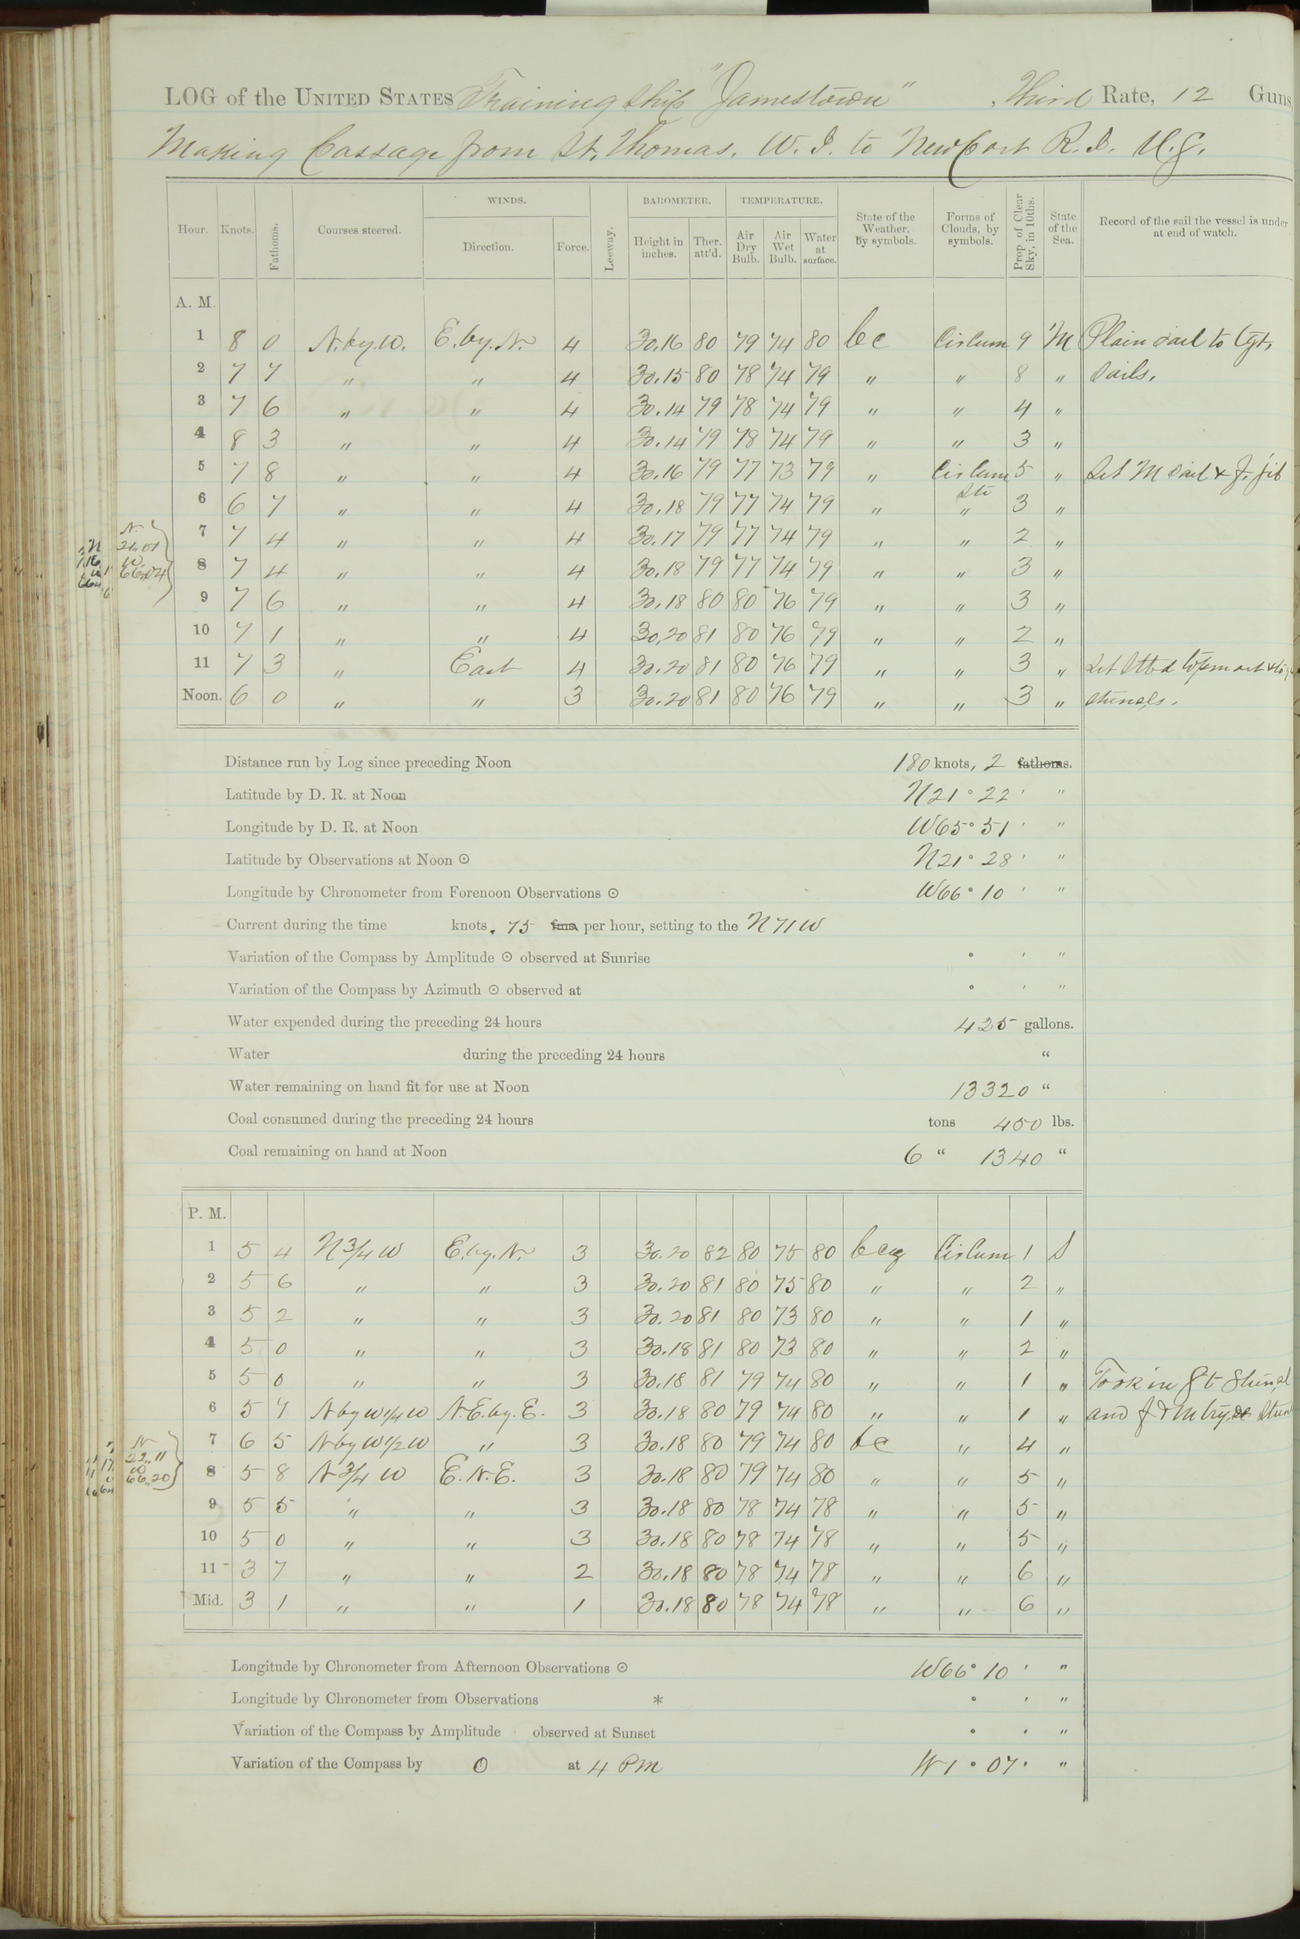 LOG of the UNITED STATES Training Ship "Jamestown", Third Rate, 12 Guns
Making Passage from St. Thomas. W. I. to NewPort R. I. U.S.
Hour. Knots. Fathoms. Courses steered. WINDS. Direction. Force. Leeway. BAROMETER. Height in inches. Ther. att'd. TEMPERATURE. Air Dry Bulb. Air Wet Bulb. Water at surface. State of the Weather, by symbols. Forms of Clouds, by symbols. Prop. of Clear Sky, in 10ths. State of the Sea. Record of the sail the vessel is under at end of watch.
A. M.
1 8 0 N. by. W. E. by. N. 4 30.16 80 79 74 80 bc Cir Cum 9 M Plain sail to tgt.
2 7 7 " " 4 30.15 80 78 74 79 " " 8 " Sails.
3 7 6 " " 4 30.14 79 78 74 79 " " 4 "
4 8 3 " " 4 30.14 79 78 74 79 " " 3 "
5 7 8 " " 4 30.16 79 77 73 79 " Cir Cum 5 " Set M sail & f. jib
6 6 7 " " 4 30.18 79 77 74 79 " Str " 3 "
7 7 4 " " 4 30.17 79 77 74 79 " " 2 "
8 7 4 " " 4 30.18 79 77 74 79 " " 3 "
N. 21.01
W. 66.04
9 7 6 " " 4 30.18 80 80 76 79 " " 3 "
10 7 1 " " 4 30.20 81 80 76 79 " " 2 "
11 7 3 " East 4 30.20 81 80 76 79 " " 3 " Set Stbd topmast &
Noon. 6 0 " " 3 30.20 81 80 76 79 " " 3 " stunsls.
Distance run by Log since preceding Noon 180 knots, 2 fathoms.
Latitude by D. R. at Noon N 21° 22 ' "
Longitude by D. R. at Noon W 65° 51 ' "
Latitude by Observations at Noon ⊙ N 21° 28 ' "
Longitude by Chronometer from Forenoon Observations ⊙ W 66° 10 ' "
Current during the time knots . 75 fms. per hour, setting to the N 71 W
Variation of the Compass by Amplitude ⊙ observed at Sunrise ° ' "
Variation of the Compass by Azimuth ⊙ observed at ° ' "
Water expended during the preceding 24 hours 425 gallons.
Water during the preceding 24 hours "
Water remaining on hand fit for use at Noon 13320 "
Coal consumed during the preceding 24 hours tons 450 lbs.
Coal remaining on hand at Noon 6 " 1340 "
P. M.
1 5 4 N 3/4 W E. by. N. 3 30.20 82 80 75 80 bcq Cir Cum 1 S
2 5 6 " " 3 30.20 81 80 75 80 " " 2 "
3 5 2 " " 3 30.20 81 80 73 80 " " 1 "
4 5 0 " " 3 30.18 81 80 73 80 " " 2 "
5 5 0 " " 3 30.18 81 79 74 80 " " 1 " Took in
6 5 7 N by W 1/4 W N. E. by. E. 3 30.18 80 79 74 80 " " 1 " and
7 6 5 N by W 1/2 W " 3 30.18 80 79 74 80 bc " 4 "
8 5 8 N 3/4 W E. N. E. 3 30.18 80 79 74 80 " " 5 "
N. 22.11
W 66.20
9 5 5 " " 3 30.18 80 78 74 78 " " 5 "
10 5 0 " " 3 30.18 80 78 74 78 " " 5 "
11 3 7 " " 2 30.18 80 78 74 78 " " 6 "
Mid. 3 1 " " 1 30.18 80 78 74 78 " " 6 "
Longitude by Chronometer from Afternoon Observations ⊙ W 66° 10 ' "
Longitude by Chronometer from Observations * ° ' "
Variation of the Compass by Amplitude observed at Sunset ° ' "
Variation of the Compass by O at 4 PM W 1° 07 ' "